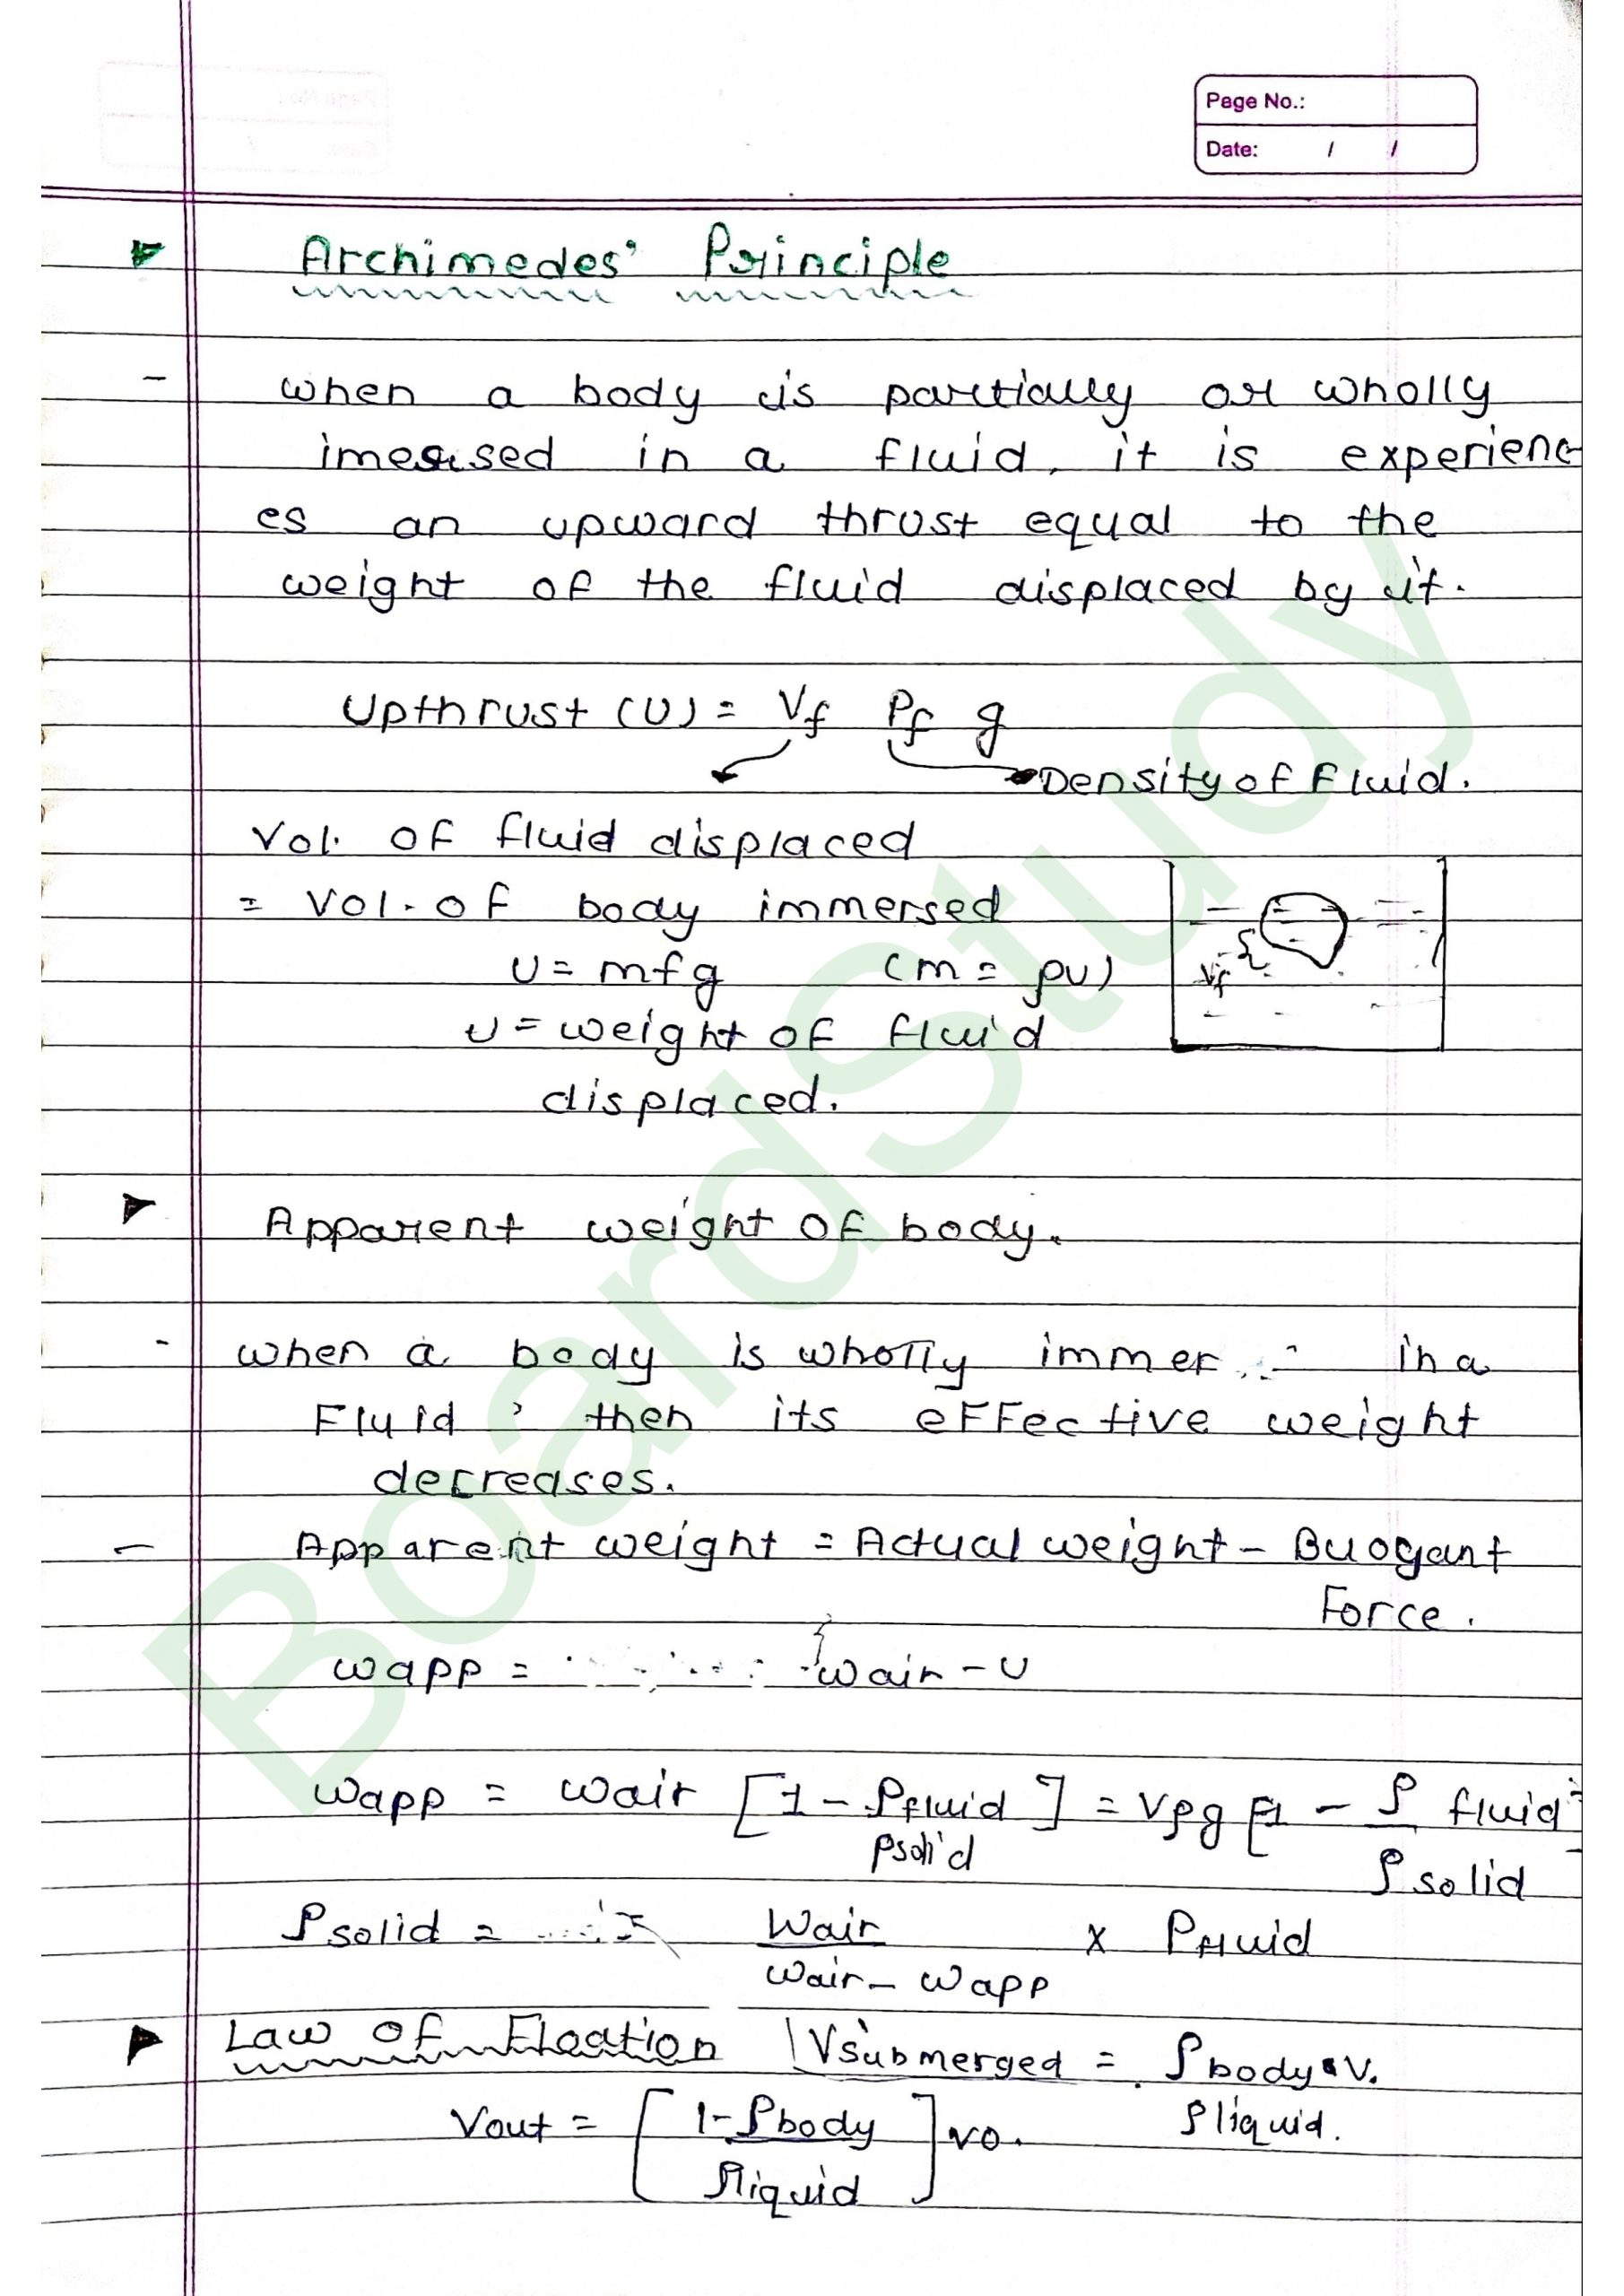 Page No.:
Date: / /
Archimedes' Principle
- when a body is partially or wholly
imersed in a fluid, it is experienc
es an upward thrust equal to the
weight of the fluid displaced by it.
Upthrust (U) = Vf Pf g
Density of Fluid.
Vol. of fluid displaced
= Vol. of body immersed
U = mfg (m = ρv)
Vf
U = weight of fluid
displaced.
Apparent weight of body.
- when a body is wholly immer in a
Fluid, then its effective weight
decreases.
- Apparent weight = Actual weight - Buoyant
Force.
wapp = wair - U
wapp = wair [1 - ρfluid / ρsolid] = vρg [1 - ρ fluid / ρ solid
ρsolid = Wair / wair - wapp x ρfluid
Law of Floation Vsubmerged = ρbody . v. / ρliquid.
Vout = [1 - ρbody / ρliquid] vo.
BoardStudy